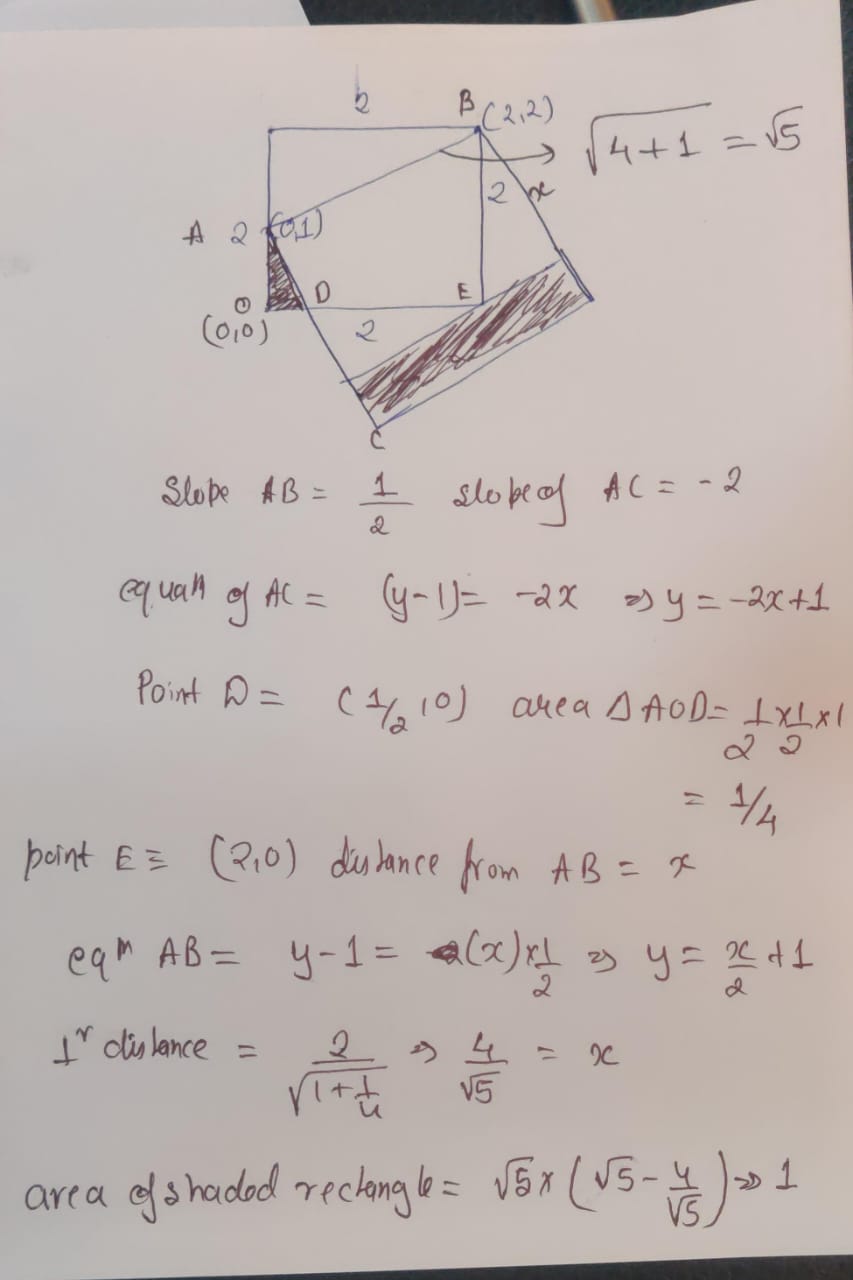 2
B (2,2)
√4+1 = √5
2 x
A 2 (0,1)
O D E
(0,0) 2
C
Slope AB = 1/2 slope of AC = -2
equan of AC = (y-1)= -2x ⇒ y = -2x+1
Point D = (1/2,0) area Δ AOD = 1/2 x 1/2 x 1
= 1/4
point E ≡ (2,0) distance from AB = x
eqn AB = y-1 = (x) x 1/2 ⇒ y = x/2 + 1
⊥r distance = 2/√1+1/4 ⇒ 4/√5 = x
area of shaded rectangle = √5 x (√5 - 4/√5) ⇒ 1